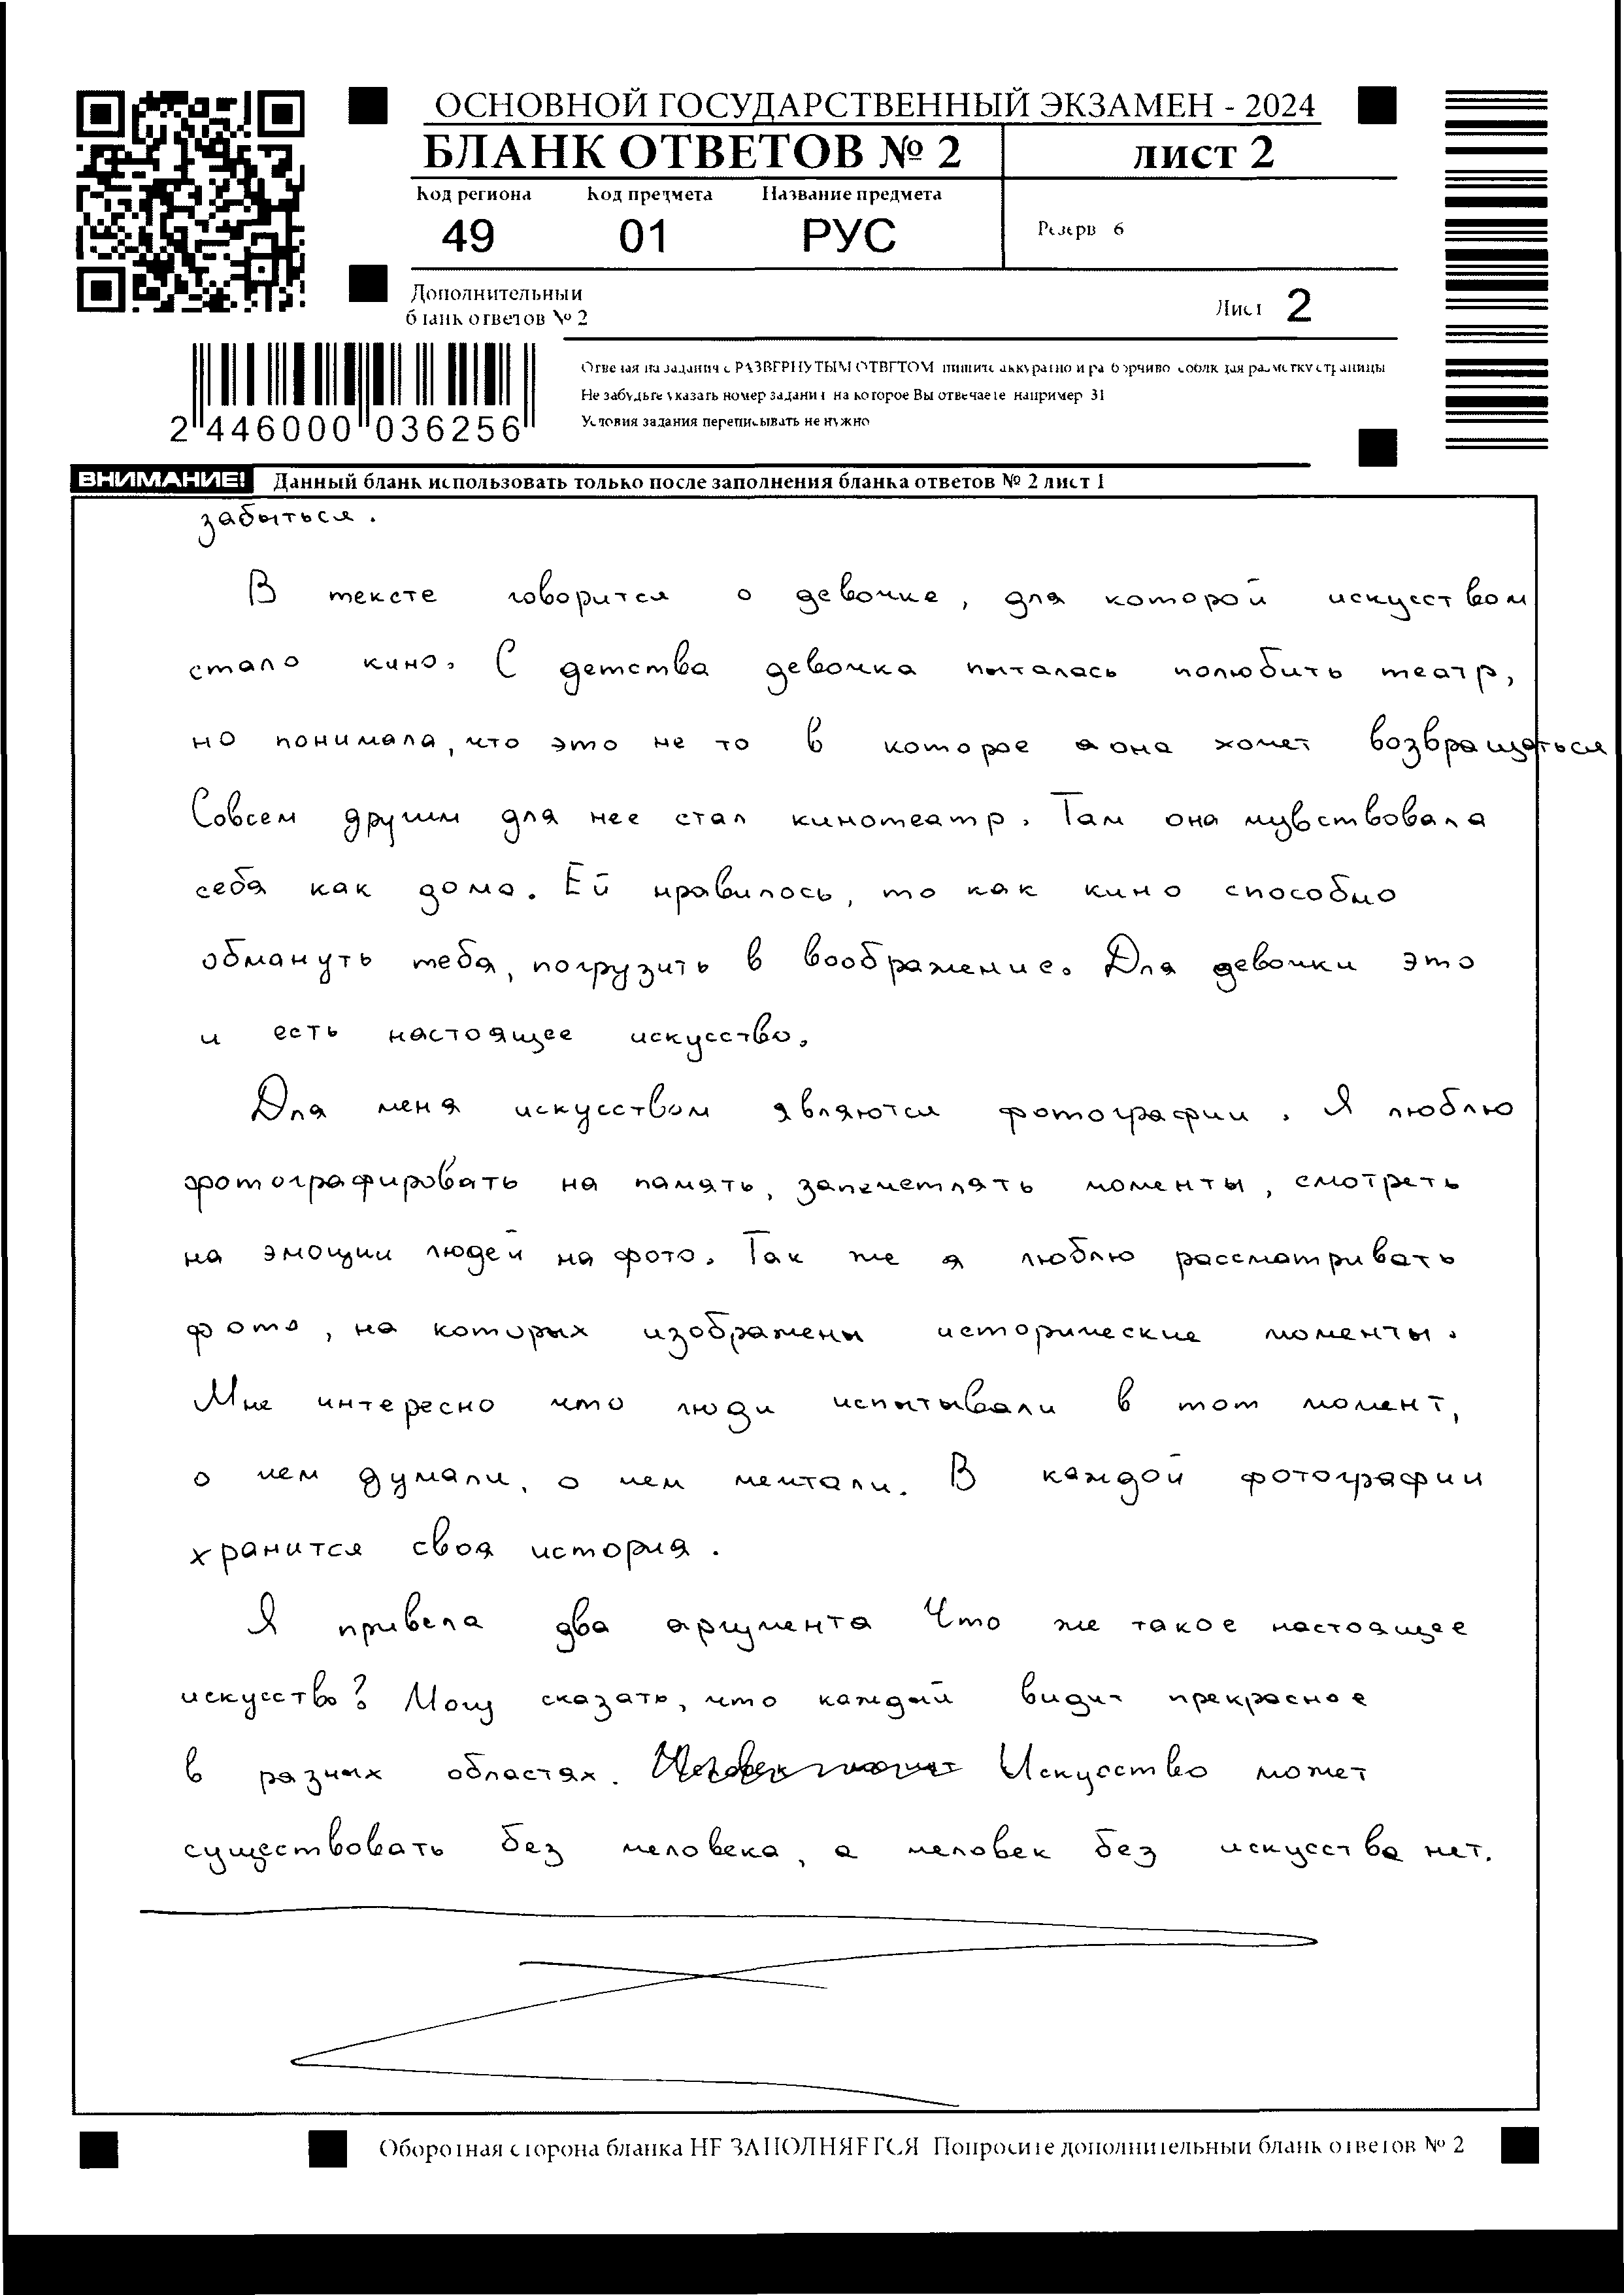 ОСНОВНОЙ ГОСУДАРСТВЕННЫЙ ЭКЗАМЕН - 2024
БЛАНК ОТВЕТОВ № 2 лист 2
Код региона Код предмета Название предмета
49 01 РУС Резерв 6
Дополнительный
бланк ответов № 2 Лист 2
Ответая на задания с РАЗВЕРНУТЫМ ОТВЕТОМ пишите аккуратно и разборчиво соблюдая разметку страницы
Не забудьте указать номер задания на которое Вы отвечаете например 31
Условия задания переписывать не нужно
2 446000 036256
ВНИМАНИЕ! Данный бланк использовать только после заполнения бланка ответов № 2 лист 1
забыться.
В тексте говорится о девочке, для которой искусством
стало кино. С детства девочка пыталась полюбить театр,
но понимала, что это не то в которое она хочет возвращаться
Совсем другим для нее стал кинотеатр. Там она чувствовала
себя как дома. Ей нравилось, то как кино способно
обмануть тебя, погрузить в воображение. Для девочки это
и есть настоящее искусство.
Для меня искусством являются фотографии. Я люблю
фотографировать на память, запечетлять моменты, смотреть
на эмоции людей на фото. Так же я люблю рассматривать
фото, на которых изображены исторические моменты.
Мне интересно что люди испытывали в тот момент,
о чем думали, о чем мечтали. В каждой фотографии
хранится своя история.
Я привела два аргумента Что же такое настоящее
искусство? Могу сказать, что каждый видит прекрасное
в разных областях. Искусство может
существовать без человека, а человек без искусства нет.
Оборотная сторона бланка НЕ ЗАПОЛНЯЕТСЯ Попросите дополнительный бланк ответов № 2